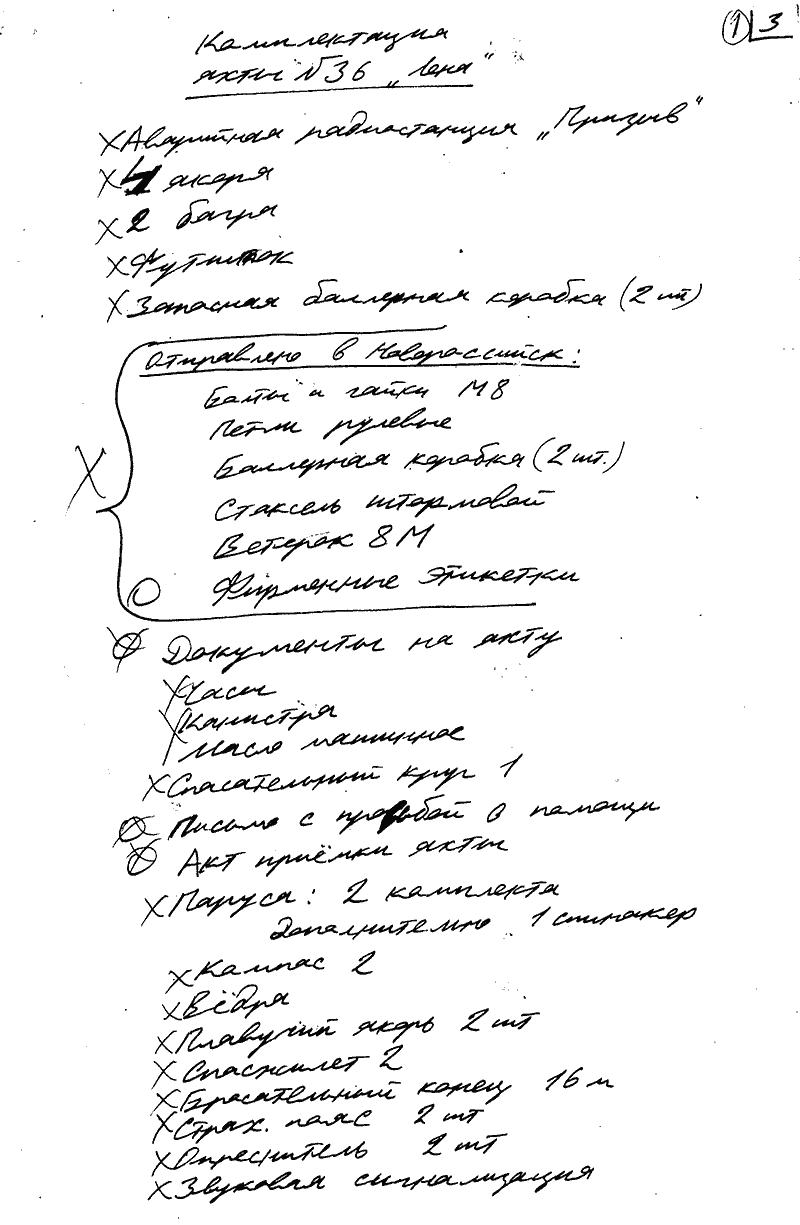 1 3
Комплектация
яхты №36 „Лена"
X Аварийная радиостанция „Призыв"
X 4 якоря
X 2 багра
X Футшток
X Запасная баллерная коробка (2 шт)
Отправлено в Новороссийск:
Болты и гайки М8
Петли рулевые
X Баллерная коробка (2 шт.)
Стаксель штормовой
Ветерок 8М
О Фирменные этикетки
Документы на яхту
X Часы
X Канистра
Масло машинное
X Спасательный круг 1
Письмо с просьбой о помощи
Акт приёмки яхты
X Паруса: 2 комплекта
Дополнительно 1 спинакер
X Компас 2
X Вёдра
X Плавучий якорь 2 шт
X Спасжилет 2
X Бросательный конец 16 м
X Страх. пояс 2 шт
X Опреснитель 2 шт
X Звуковая сигнализация